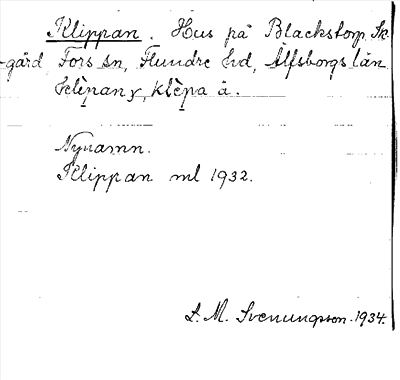 Klippan. Hus på Blackstorp, Sk
-gård Fors sn, Flundre hd, Älfsborgs län
klèpany, klèpa å.
Nynamn.
Klippan ml 1932.
S. M. Svenungsson. 1934.